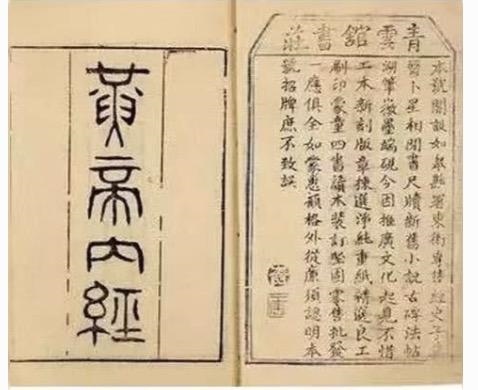 青雲舘書莊
本號開設如皋縣署東街專售經史子
醫卜星相閒書尺牘新舊小說古碑法帖
湖筆徽墨端硯今因推廣文化起見不惜
工本新刻版章揀選淨純重紙精選良工
刷印蒙童四書讀本裝訂堅固零售批發
一應俱全如蒙惠顧格外從廉須認明本
號招牌庶不致誤
黃帝內經